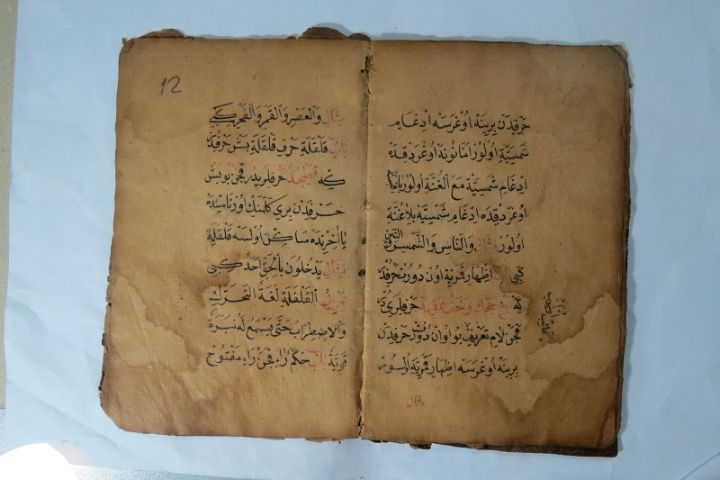 حَرْفِدَنْ بِرِينَهْ اُوغْرَسَهْ اِدْغَامِ
شَمْسِيَّة اُولُورْ اَمَّا نُونَهْ اُوغْرَدِقْدَهْ
اِدْغَامِ شَمْسِيَّة مَعَ الْغُنَّة اُولُورْ
اُوغْرَدِقْدَه اِدْغَامِ شَمْسِيَّة بِلَاغُنَّة
اُولُورْ مثال وَالنَّاسِ وَالشَّمْسِ
كبى اظهار قمرية اون دورت حرفده
حرفلرى
قچن لام تعريف بو اون دورت حرفدن
برينه اوغرسه اظهار قمرية اولور
مثال
12
مثال وَالْعَصْرِ وَالْقَمَرِ وَالْفَجْرِ كبى
باب قلقلة حرف قلقلة بش حرفدر
كه قطبجد حرفلريدر قچن بو بش
حرفدن برى كلمنك اورتاسنده
يا اخرنده ساكن اولسه قلقلة
مثال يَدْخُلُونَ بِالْحَقِّ اَحَدٌ كبى
القلقلة لغة التحرك
والاضطراب حتى يسمع له نبرة
قوية باب حكم راء قچن راء مفتوح